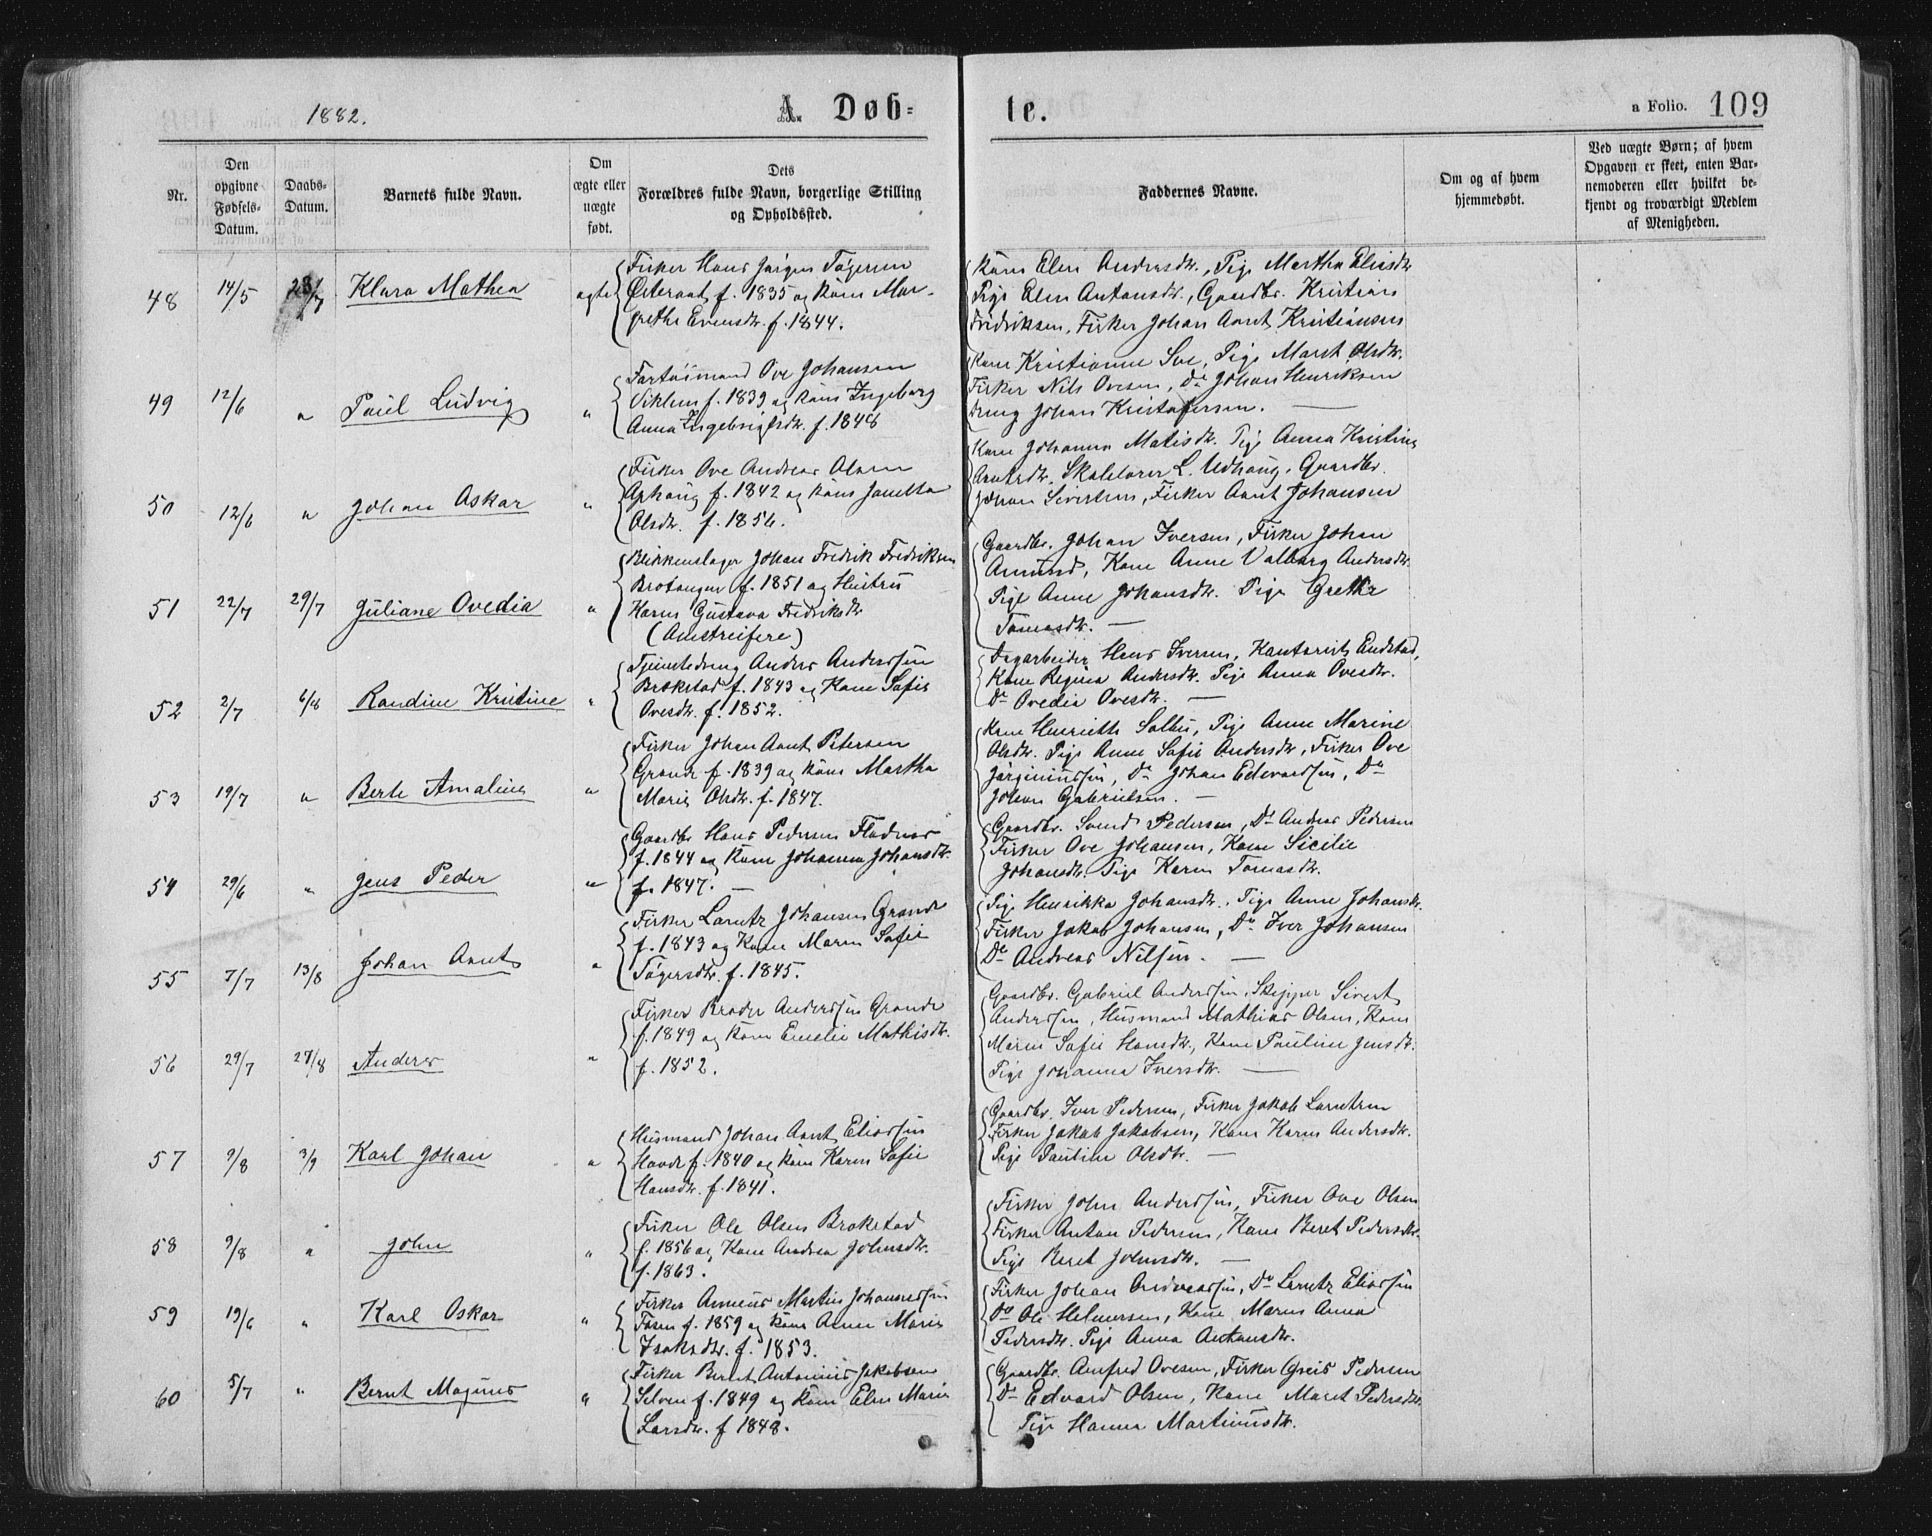 1882.
A. Døb-
te.
a Folio. 109
Nr.
Den
opgivne
Fødsels-
Datum.
Daabs-
Datum.
Barnets fulde Navn.
Om
ægte eller
uægte
født.
Dets
Forældres fulde Navn, borgerlige Stilling
og Opholdssted.
Faddernes Navne.
Om og af hvem
hjemmedøbt.
Ved uægte Børn; af hvem
Opgaven er skeet, enten Bar-
nemoderen eller hvilket be-
kjendt og troværdigt Medlem
af Menigheden.
48 14/5 23/7 Klara Mathea ægte
Fisker Hans Jørgen Tøgersen
Østeraat f. 1835 og Kone Mar-
grethe Evensdtr. f. 1844.
Kone Elen Andersdtr., Pige Martha Eliasdtr
Pige Elen Antonsdtr., Gaardbr. Kristian
Fredriksen, Fisker Johan Arnt Kristiansen
49 12/6 " Paul Ludvig "
Fartøimand Ove Johansen
Viklem f. 1839 og Kone Ingeborg
Anna Ingebrigtsdtr. f. 1848
Kone Kristianne Sve, Pige Maret Olsdtr.
Fisker Nils Ovesen, Do Johan Henriksen
Dreng Johan Kristofersen. —
50 12/6 " Johan Oskar "
Fisker Ove Andreas Olsen
Ophaug f. 1842 og Kone Janetta
Olsdtr. f. 1856.
Kone Johanna Matisdtr. Pige Anna Kristine
Arntsdtr. Skolelærer L. Udhaug, Gaardbr.
Johan Sivertsen, Fisker Arnt Johansen
51 22/7 29/7 Juliane Ovedia "
Blikkenslager Johan Fredrik Fredriksen
Brotangen f. 1851 og Hustru
Karen Gustava Fredriksdtr
(Omstreifere)
Gaardbr. Johan Iversen, Fisker Johan
Amund, Kone Anne Valborg Andersdtr.
Pige Anne Johansdtr. Pige Grethe
Tomasdtr. —
52 2/7 6/8 Randine Kristine "
Tjenestedreng Anders Anderssen
Brekstad f. 1843 og Kone Sofie
Ovesdtr. f. 1852.
Dagarbeider Hans Iversen,
Kone Regina Andersdtr. Pige Anna Ovesdtr.
Do Ovedia Ovesdtr. —
53 19/7 " Berte Amalie "
Fisker Johan Arnt Petersen
Grande f. 1839 og Kone Martha
Marie Olsdtr. f. 1847.
Kone Henriette Solbu, Pige Anne Marine
Olsdtr. Pige Anne Sofie Andersdtr., Fisker Ove
Jørginussen, Do Johan Edvardsen, Do
Johan Gabrielsen. —
54 29/6 " Jens Peder "
Gaardbr Hans Pedersen Fladnes
f. 1844 og Kone Johanna Johansdtr.
f. 1847. —
Gaardbr. Svend Pedersen, Do Andreas Pedersen
Fisker Ove Johansen, Kone Sicilie
Johansdtr. Pige Karen Tomasdtr.
55 7/7 13/8 Johan Arnt "
Fisker Larentz Johansen Grande
f. 1843 og Kone Maren Sofie
Tøgersdtr. f. 1845.
Pige Henrikka Johansdtr. Pige Anne Johansdtr.
Fisker Jakob Johansen, Do Iver Johansen
Do Andreas Nilsen. —
56 29/7 27/8 Anders "
Fisker Broder Anderssen Grande
f. 1849 og Kone Emelie Mathisdtr.
f. 1852.
Gaardbr. Gabriel Anderssen, Skipper Sivert
Anderssen, Husmand Mathias Olsen, Kone
Maren Sofie Hansdtr, Kone Pauline Jensdtr.
Pige Johanna Iversdtr. —
57 9/8 3/9 Karl Johan "
Husmand Johan Arnt Eliassen
Hovde f. 1840 og Kone Karen Sofie
Hansdtr. f. 1841.
Gaardbr. Iver Pedersen, Fisker Jakob Larentsen
Fisker Jakob Jakobsen, Kone Karen Andersdtr.
Pige Pauline Olsdtr. —
58 9/8 " John "
Fisker Ole Olsen Brekstad
f. 1856 og Kone Andrea Johnsdtr.
f. 1863.
Fisker John Anderssen, Fisker Ove Olsen
Fisker Anton Pedersen, Kone Beret Pedersdtr.
Pige Beret Johnsdtr. —
59 19/6 " Karl Oskar "
Fisker Martin Johannessen
f. 1859 og Kone Anne Marie
Isaksdtr. f. 1853.
Fisker Johan Andreassen, Do Larentz Eliassen
Do Ole Helmersen, Kone Maren Anna
Pedersdtr. Pige Anna Antonsdtr.
60 5/7 " Bernt Magnus "
Fisker Bernt Antonius Jakobsen
Selven f. 1849 og Kone Elen Marie
Larsdtr. f 1848.
Gaardbr. Amfred Ovesen, Fisker Greis Pedersen
Do Edvard Olsen, Kone Maret Pedersdtr.
Pige Hanna Martinusdtr.